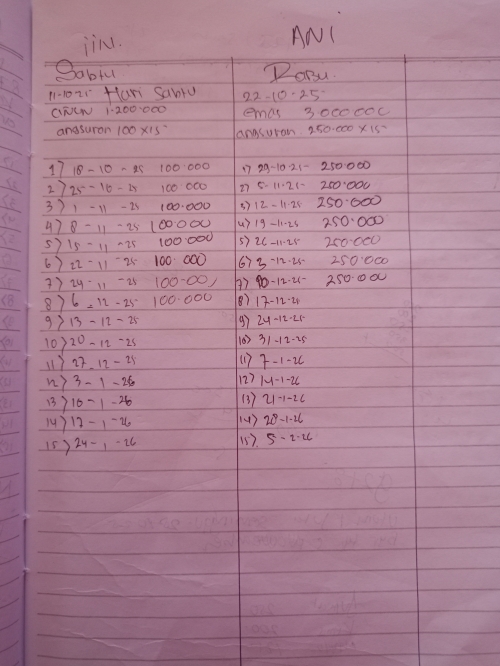 iin.
Sabtu
11-10-25 Hari Sabtu
1.200.000
angsuran 100 x 15
1) 18 - 10 - 25 100.000
2) 25 - 10 - 25 100.000
3) 1 - 11 - 25 100.000
4) 8 - 11 - 25 100.000
5) 15 - 11 - 25 100.000
6) 22 - 11 - 25 100.000
7) 29 - 11 - 25 100.00
8) 6 - 12 - 25 100.000
9) 13 - 12 - 25
10) 20 - 12 - 25
11) 27 - 12 - 25
12) 3 - 1 - 26
13) 10 - 1 - 26
14) 17 - 1 - 26
15) 24 - 1 - 26
ANI
Rabu.
22-10-25
emas 3.000.000
angsuran 250.000 x 15
1) 29-10-25 250.000
2) 5-11-25 250.000
3) 12-11-25 250.000
4) 19-11-25 250.000
5) 26-11-25 250.000
6) 3-12-25 250.000
7) 10-12-25 250.000
8) 17-12-25
9) 24-12-25
10) 31-12-25
11) 7-1-26
12) 14-1-26
13) 21-1-26
14) 28-1-26
15) 5-2-26